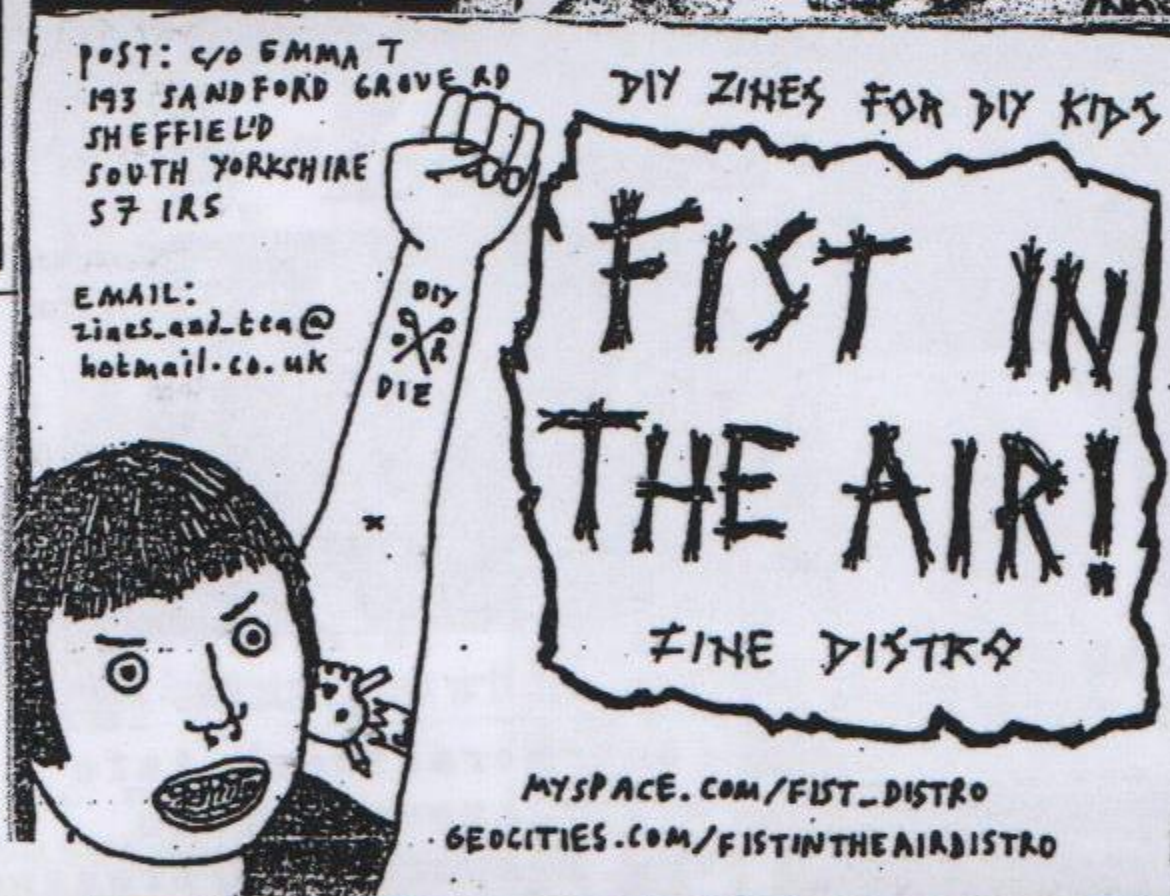 POST: C/O EMMA T
193 SANDFORD GROVE RD
SHEFFIELD
SOUTH YORKSHIRE
S7 1RS
EMAIL:
zines_and_tea@
hotmail.co.uk
DIY
R
DIE
DIY ZINES FOR DIY KIDS
FIST IN
THE AIR!
ZINE DISTRO
MYSPACE.COM/FIST_DISTRO
GEOCITIES.COM/FISTINTHEAIRDISTRO